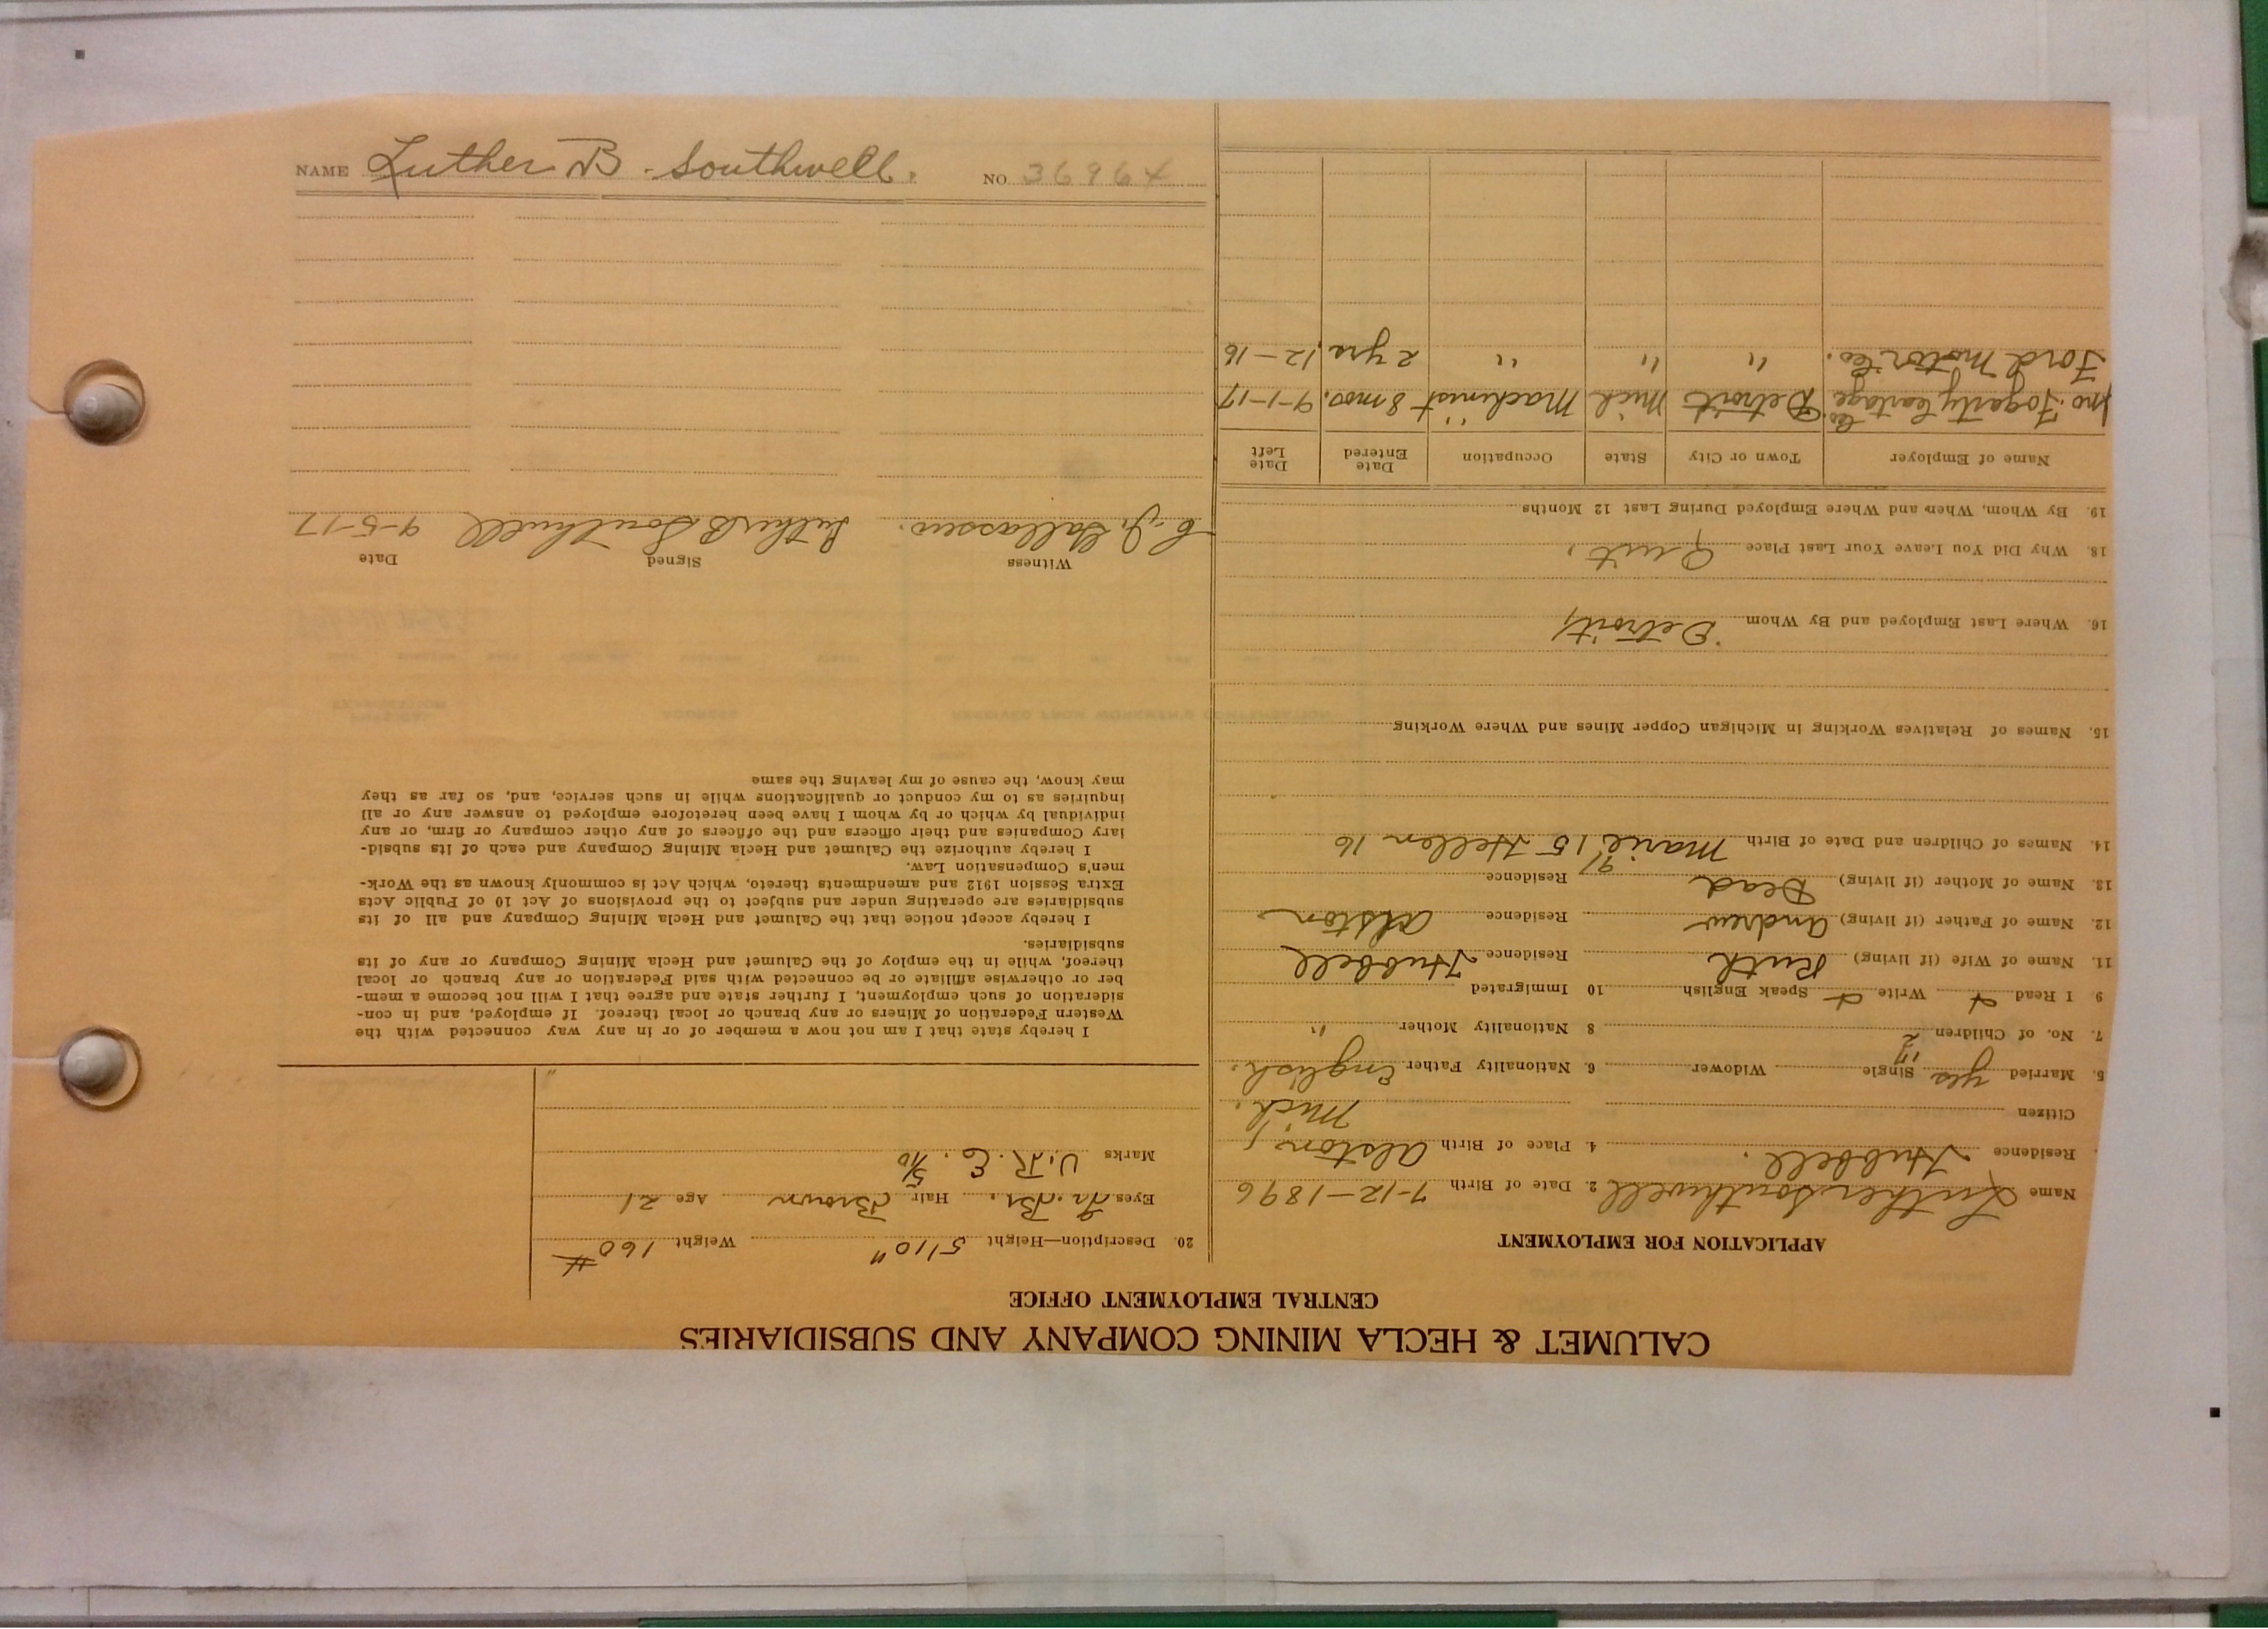 NAME Luther B. Southwell. NO. 36964
CALUMET & HECLA MINING COMPANY AND SUBSIDIARIES
CENTRAL EMPLOYMENT OFFICE
APPLICATION FOR EMPLOYMENT
Name Luther Southwell 2. Date of Birth 7-12-1896
Residence Hubbell. 4. Place of Birth Alston,
Citizen Mich.
5. Married yes Single Widower 6. Nationality Father English.
7. No. of Children 2 8 Nationality Mother "
9 I Read Write Speak English 10 Immigrated
11. Name of Wife (if living) Ruth Residence Hubbell
12. Name of Father (if living) Andrew Residence Alston
13. Name of Mother (if living) Dead Residence
14. Names of Children and Date of Birth Marie 15 Hellen 16
15. Names of Relatives Working in Michigan Copper Mines and Where Working
16. Where Last Employed and By Whom Detroit,
18. Why Did You Leave Your Last Place Quit.
19. By Whom, When and Where Employed During Last 12 Months
Name of Employer Town or City State Occupation Date Entered Date Left
Jno. Fogarty Cartage Co. Detroit Mich Machinist 8 mos. 9-1-17
Ford Motor Co. " " " 2 yrs 12-16
20. Description—Height 5/10" Weight 160 #
Eyes Hair Brown Age 21
Marks V.R.E. 5/10
I hereby state that I am not now a member of or in any way connected with the
Western Federation of Miners or any branch or local thereof. If employed, and in con-
sideration of such employment, I further state and agree that I will not become a mem-
ber or otherwise affiliate or be connected with said Federation or any branch or local
thereof, while in the employ of the Calumet and Hecla Mining Company or any of its
subsidiaries.
I hereby accept notice that the Calumet and Hecla Mining Company and all of its
subsidiaries are operating under and subject to the provisions of Act 10 of Public Acts
Extra Session 1912 and amendments thereto, which Act is commonly known as the Work-
men's Compensation Law.
I hereby authorize the Calumet and Hecla Mining Company and each of its subsid-
iary Companies and their officers and the officers of any other company or firm, or any
individual by which or by whom I have been heretofore employed to answer any or all
inquiries as to my conduct or qualifications while in such service, and, so far as they
may know, the cause of my leaving the same
Witness Signed Date
Luther B Southwell 9-5-17